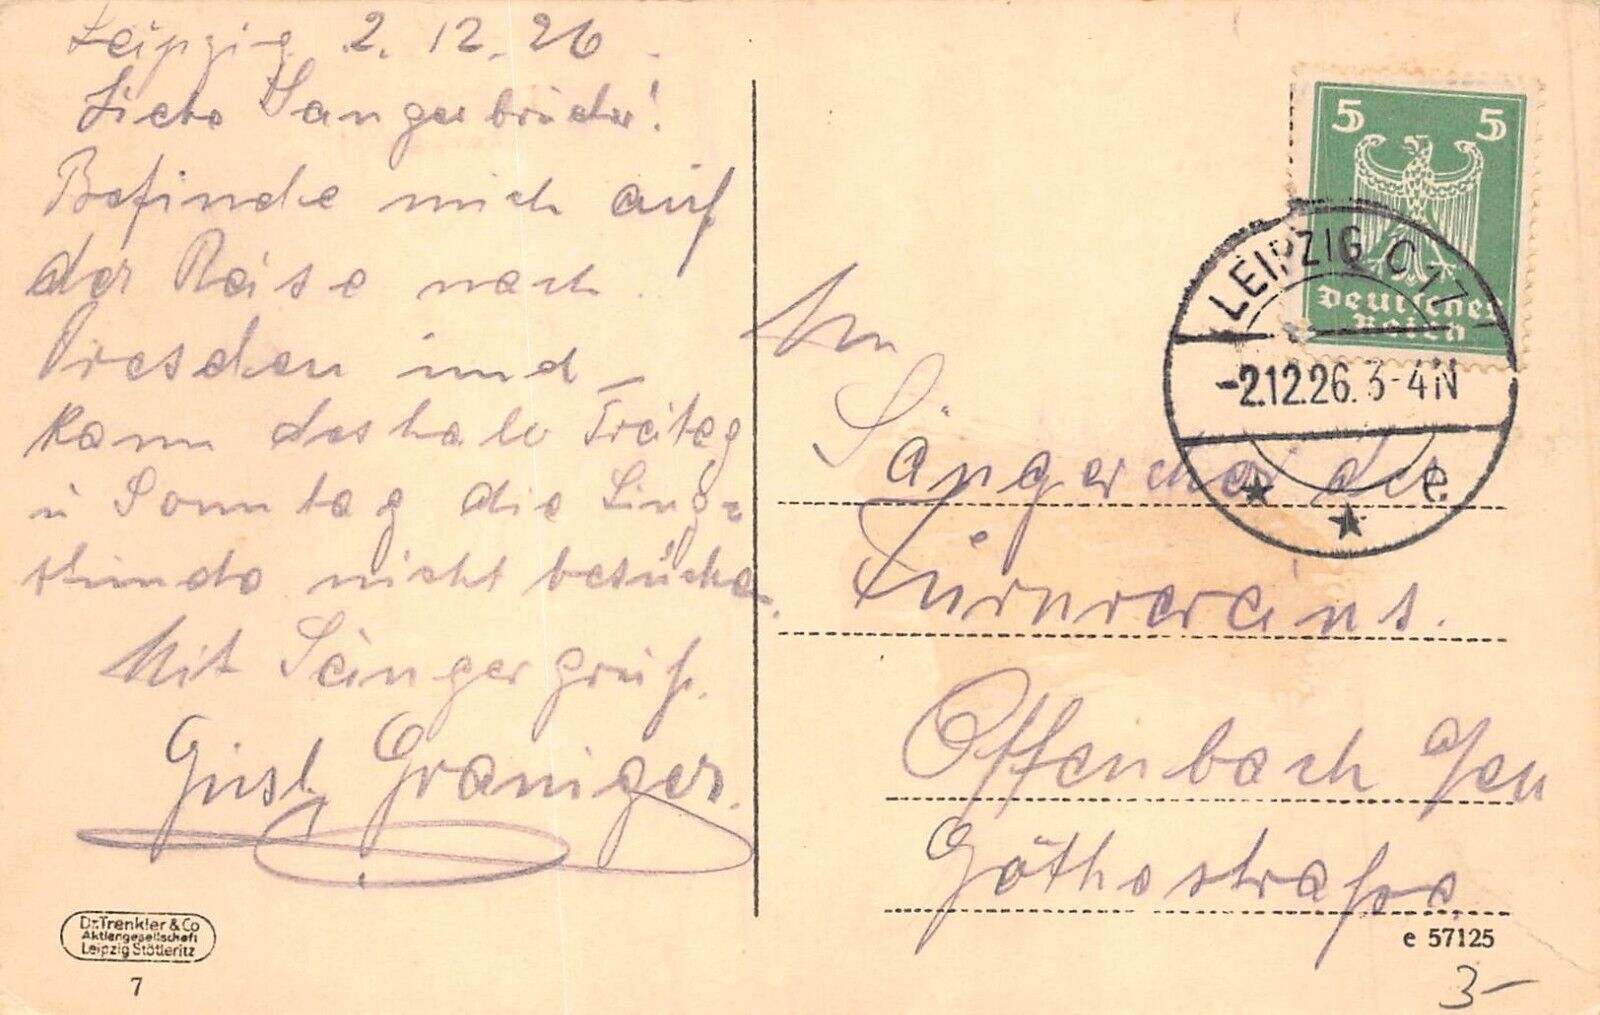 Leipzig 2.12.26
Liebe Sangerbrüder!
Befinde mich auf
der Reise nach
Dresden und
kann deshalb Freitag
u Sonntag die Sing-
stunde nicht besuche.
Mit Sängergruß.
Gust. Graniger.
An
Sängerchor des
Turnvereins.
Offenbach a/M
Göthestraße
5 5
Deutsches
Reich
LEIPZIG C 17
-2.12.26. 3-4N
e
Dr. Trenkler & Co
Aktiengesellschaft
Leipzig Stötteritz
7
e 57125
3-